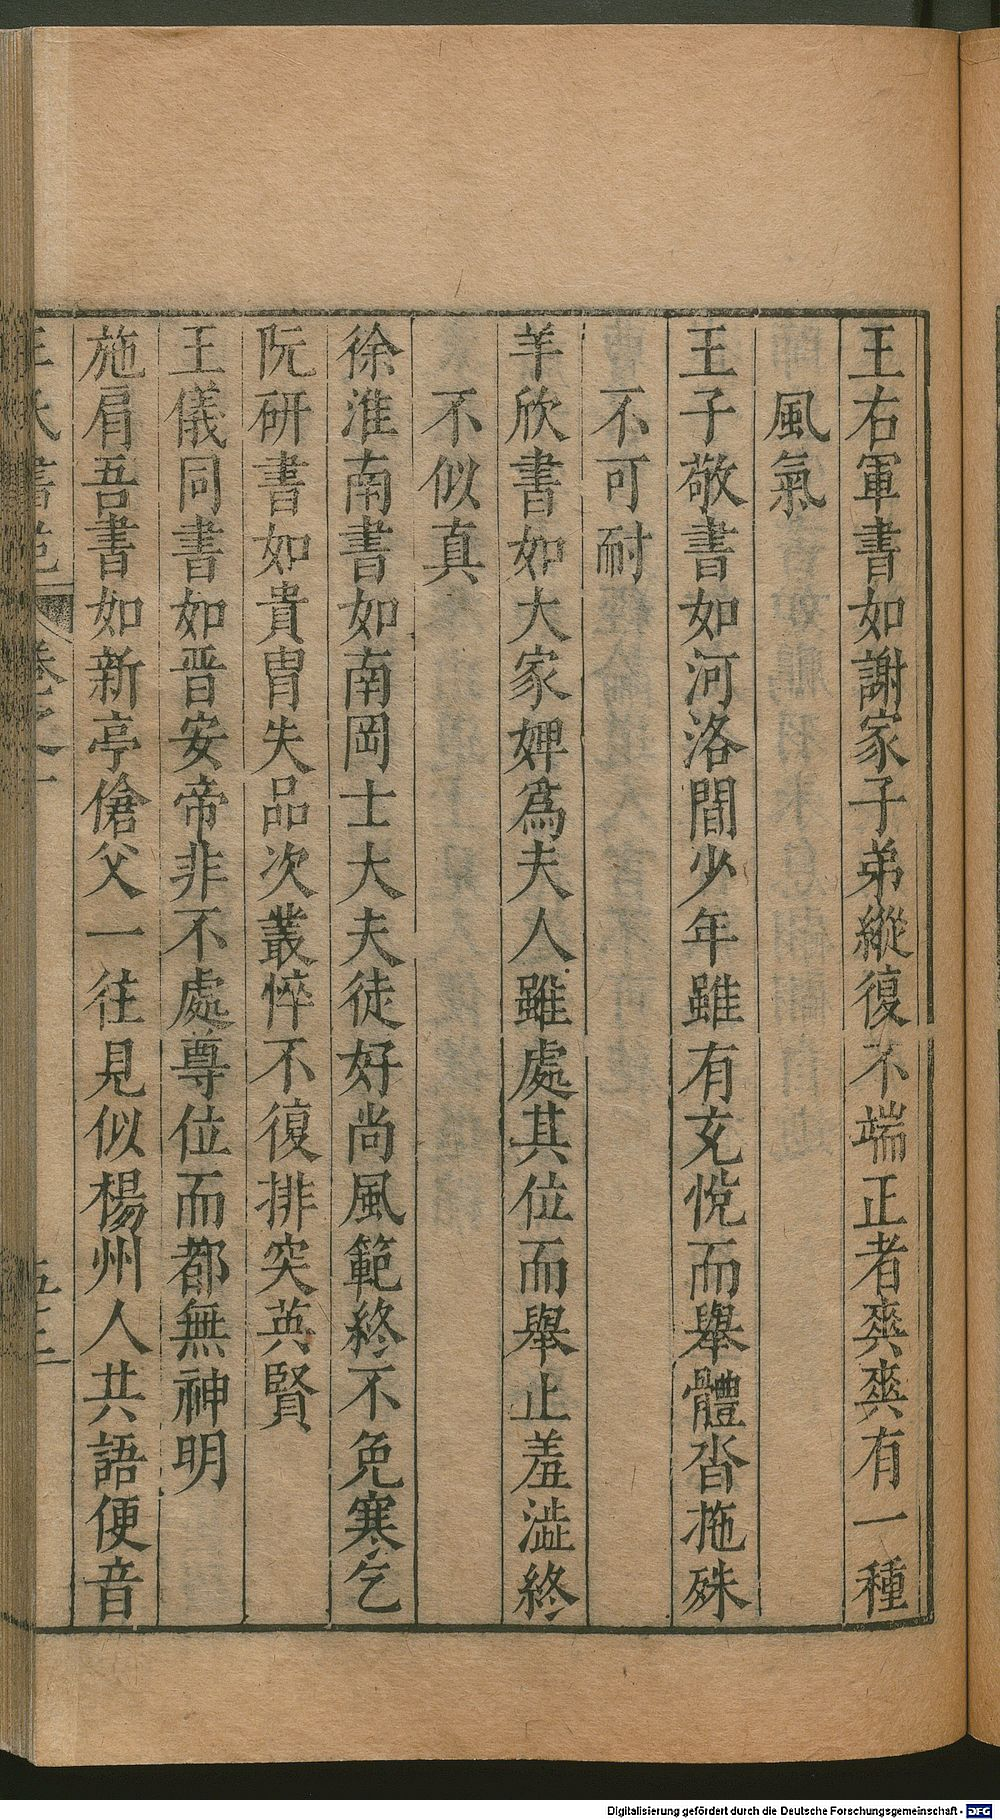 王右軍書如謝家子弟縱復不端正者爽爽有一種
風氣
王子敬書如河洛間少年雖有充悅而舉體沓拖殊
不可耐
羊欣書如大家婢爲夫人雖處其位而舉止羞澁終
不似真
徐淮南書如南岡士大夫徒好尚風範終不免寒乞
阮研書如貴胄失品次叢悴不復排突英賢
王儀同書如晋安帝非不處尊位而都無神明
施肩吾書如新亭傖父一往見似楊州人共語便音
王氏書苑 卷之一 五十二
Digitalisierung gefördert durch die Deutsche Forschungsgemeinschaft - DFG